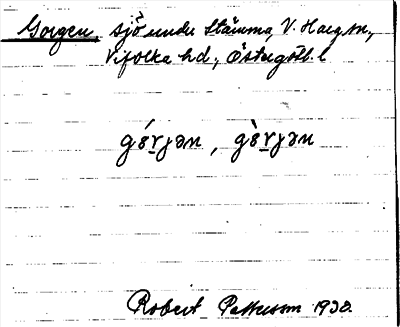 Gorgen, sjö under Stämma, V. Harg sn,
Vifolka hd, Östergötl. l
górjən, gòrjən
Robert Pettersson 1930.